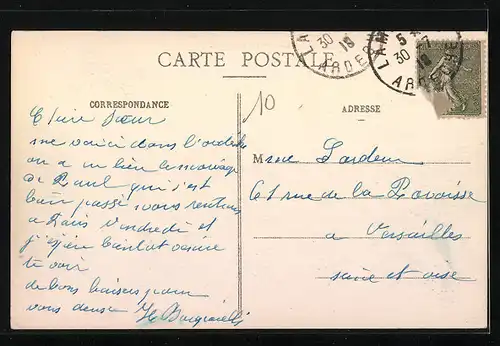 CARTE POSTALE
CORRESPONDANCE
Chère Sœur
me voici dans l'ardèche
on a eu bien le mariage
de Paul qui s'est
bien passé nous rentrons
a Paris vendredi et
j'espère bientot venir
te voir
de bons baisers pour
vous deux
10
ADRESSE
Mme
61 rue de la Paroisse
a Versailles
seine et oise
30
19
ARDE
LAM
5
30
7
19
ARDE